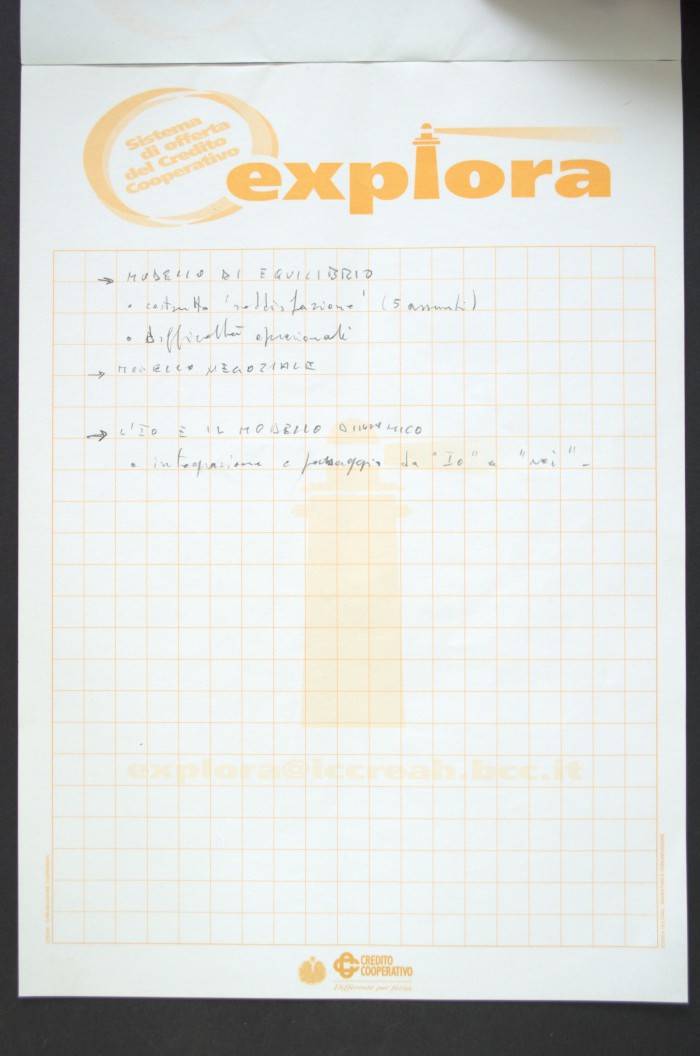 Sistema
di offerta
del Credito
Cooperativo
explora
→ MODELLO DI EQUILIBRIO
• costrutto "soddisfazione" (5 assunti)
• Difficoltà operazionali
→ MODELLO NEGOZIALE
→ L'IO E IL MODELLO DINAMICO
• integrazione e passaggio da "Io" a "Noi" -
explora@iccreah.bcc.it
CREDITO
COOPERATIVO
Differente per forza